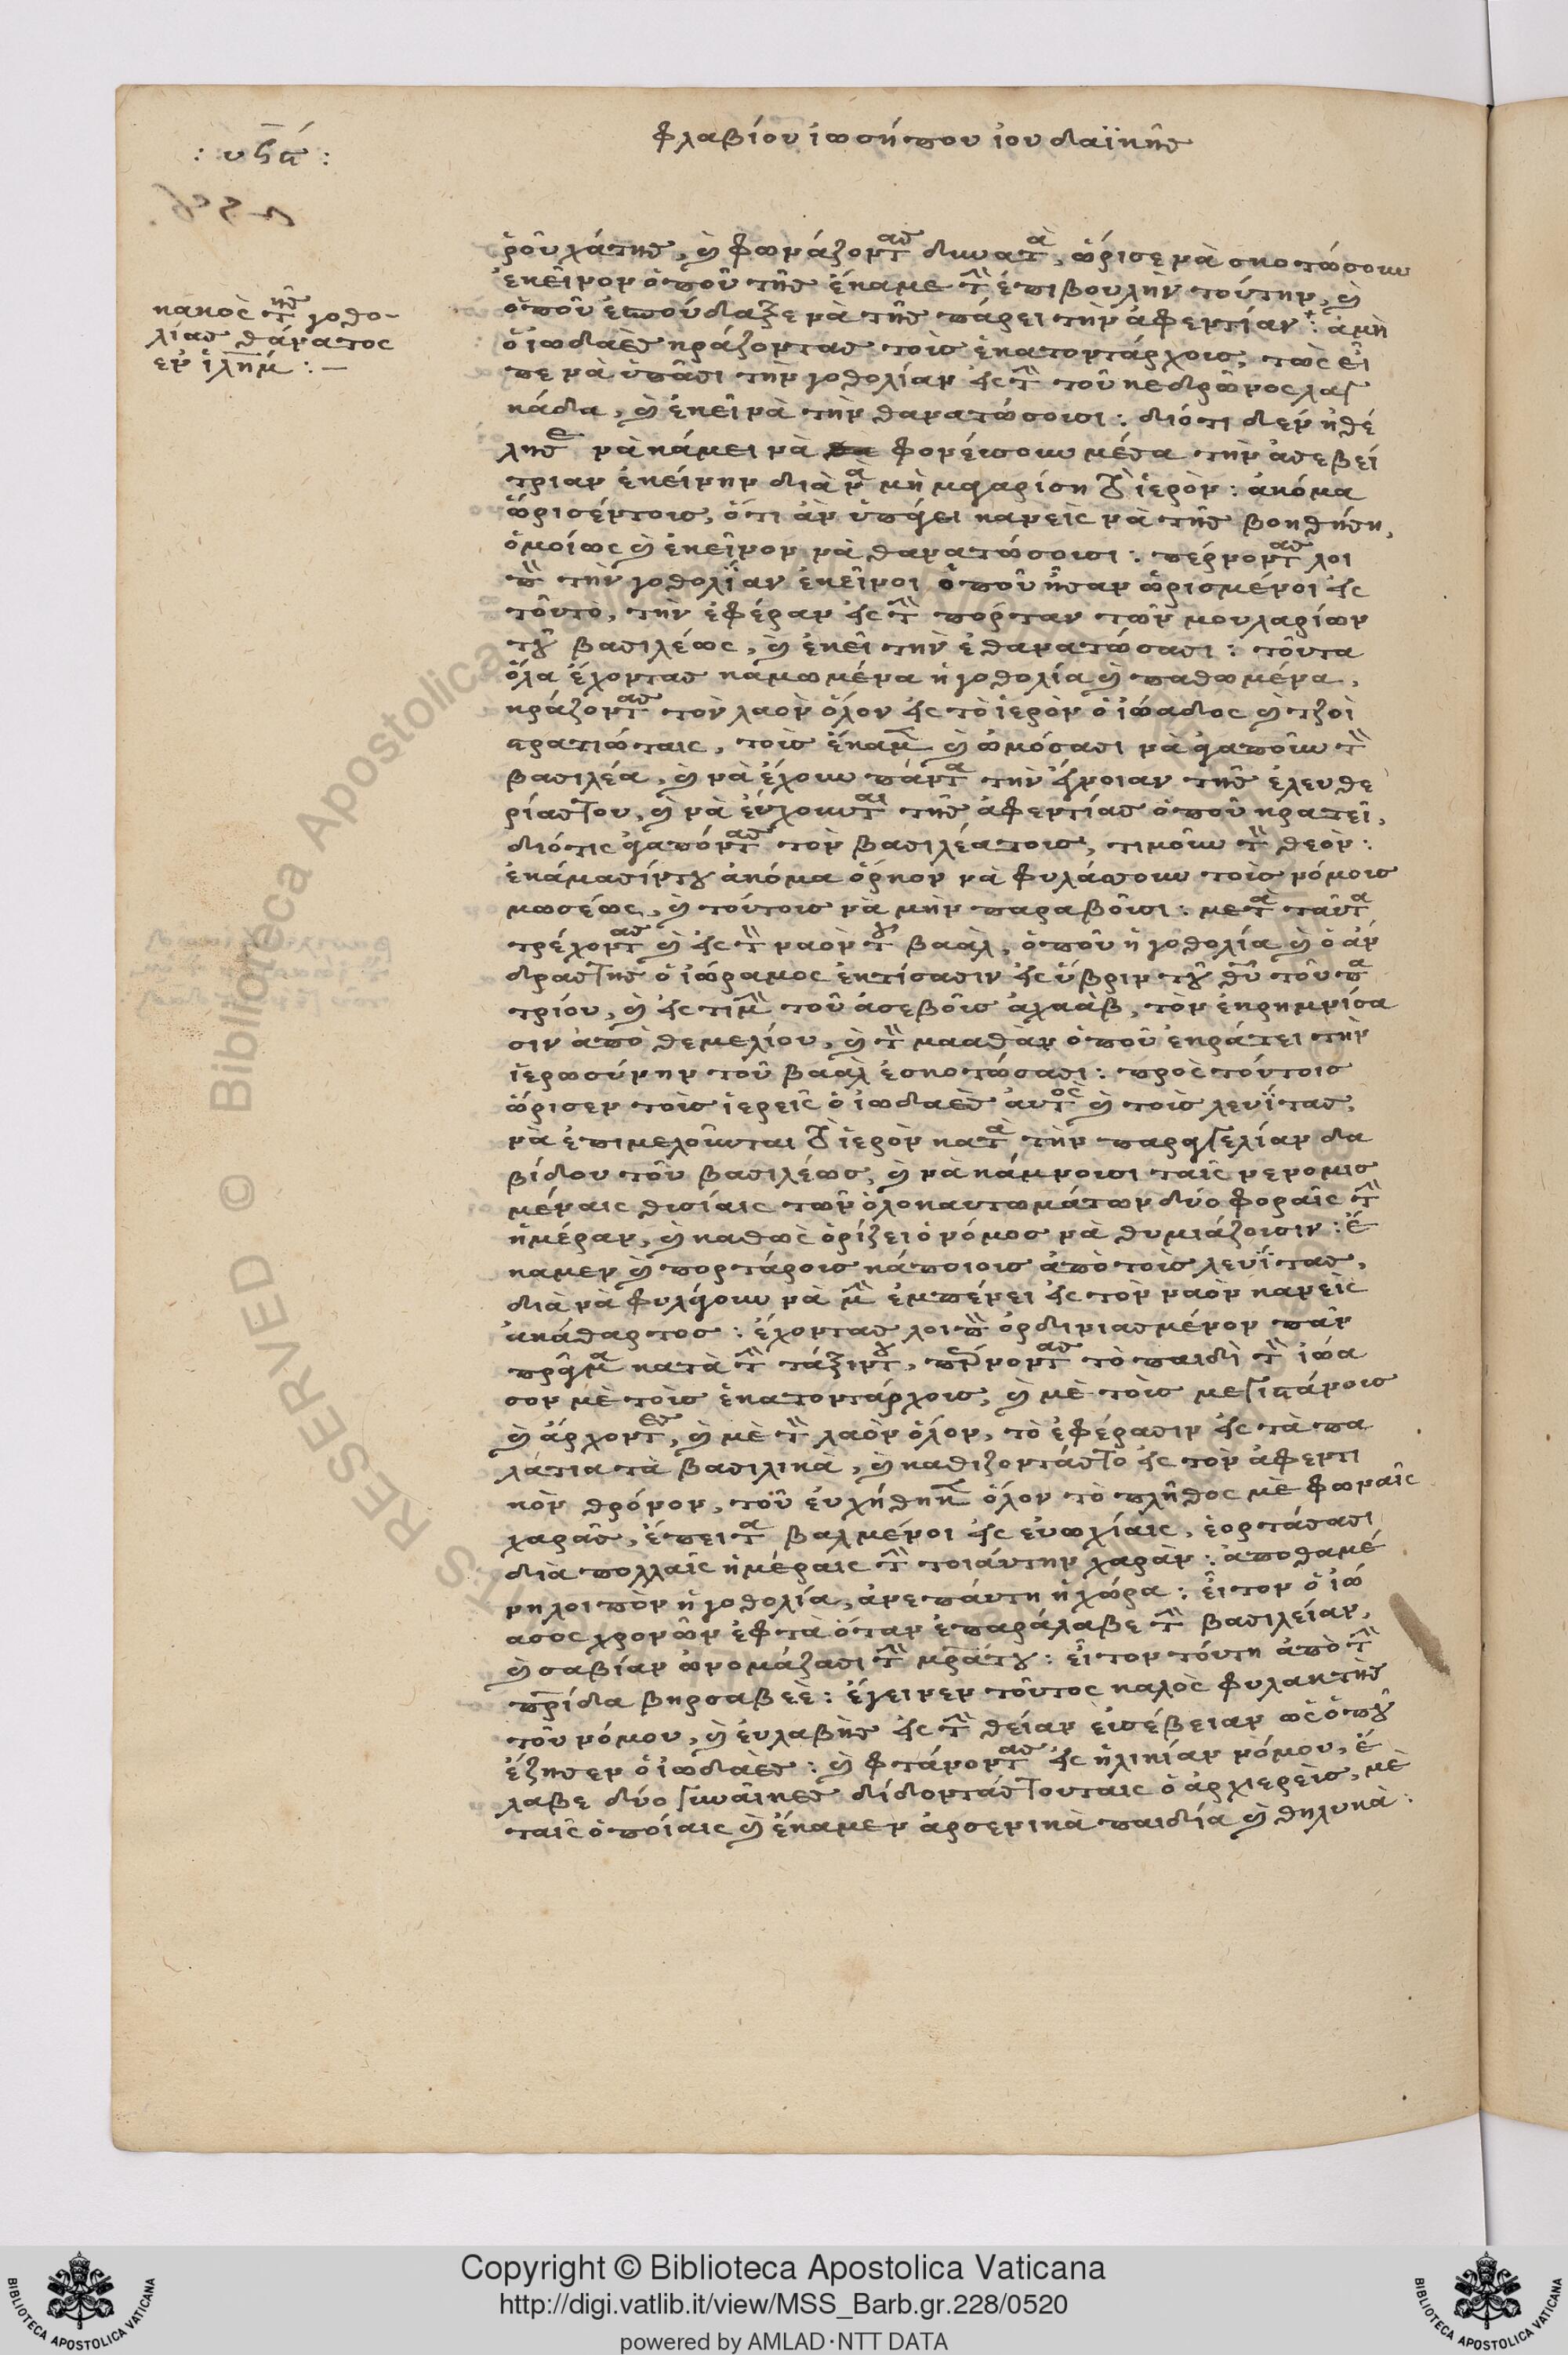 φλαβίου ἰωσήπου ἰουδαϊκῆσ
: υϟα :
κακὸς τῆσ γοθο-
λίασ θάνατος
ἐν ἱλήμ : —
ροῦχάτησ, καὶ φωνάζοντασ δυνατὰ, ὥρισε νὰ σκοτώσουν
ἐκεῖνον ὁποῦ τῆσ ἔκαμε τὴν ἐπιβουλὴν τούτην, καὶ
ὁποῦ ἐσπούδαξε νὰ τῆσ πάρει τὴν ἀφεντίαν : ἀμὴ
ὁ ἰωδαὲσ κράζοντασ τοὺσ ἑκατοντάρχουσ, τοὺς εἶ
πε νὰ ὑπᾶσι τὴν γοθολίαν εἰς τὴν τοῦ κεδρῶνος λαγ
κάδα, καὶ ἐκεῖ νὰ τὴν θανατώσουσι : διότι δὲν ἠθέ
λησε νὰ κάμει νὰ φονεύσουν μέσα τὴν ἀσεβεί
τριαν ἐκείνην διὰ νὰ μὴ μιαρίση τὸ ἱερὸν : ἀκόμα
ὥρισέντουσ, ὅτι ἂν ὑπάγει κανεὶς νὰ τῆσ βοηθήση,
ὁμοίως καὶ ἐκεῖνον νὰ θανατώσουσι : πέρνοντασ λοι
πὸν τὴν γοθολΐαν ἐκεῖνοι ὁποῦ ἦσαν ὡρισμένοι εἰς
τοῦτο, τὴν ἐφέραν εἰς τὴν πόρταν τῶν μουλαρίων
τοῦ βασιλέως, καὶ ἐκεῖ τὴν ἐθανατώσασι : τοῦτα
ὅλα ἔχοντασ καμωμένα ἡ γοθολία καὶ παθωμένα,
κράζοντασ τὸν λαὸν ὅλον εἰς τὸ ἱερὸν ὁ ἰώαδος καὶ τζοὶ
στρατιώταις, τοὺσ ἔκαμεν καὶ ὠμόσασι νὰ ἀγαποῦν τὸν
βασιλέα, καὶ νὰ ἔχουν πάντα τὴν ἔννοιαν τῆσ ἐλευθε
ρίαστου, καὶ νὰ εὔχουνται τῆσ ἀφεντίασ ὁποῦ κρατεῖ,
διότις ἀγαπόντασ τὸν βασιλέατουσ, τιμοῦν τὸν θεὸν :
ἐκάμασίντου ἀκόμα ὅρκον νὰ φυλάσσουν τοὺσ νόμουσ
μωσέως, καὶ τούτουσ νὰ μὴν παραβοῦσι : μετὰ ταῦτα
τρέχοντασ καὶ εἰς τὸν ναὸν τοῦ βαὰλ, ὁποῦ ἡ γοθολία καὶ ὁ ἄν
δραστησ ὁ ἰώραμος ἐκτίσασιν εἰς ὕβριν τοῦ θεοῦ τοῦ πα
τρίου, καὶ εἰς τιμὴν τοῦ ἀσεβοῦσ ἀχαὰβ, τὸν ἐκρημνίσα
σιν ἀπὸ θεμελίου, καὶ τὸν μααθὰν ὁποῦ ἐκράτει τὴν
ἱερωσύνην τοῦ βαὰλ ἐσκοτώσασι : πρὸς τούτοισ
ὥρισεν τοὺσ ἱερεῖς ὁ ἰωδαὲσ αὐτὸς καὶ τοὺσ λευΐτασ,
νὰ ἐπιμελοῦνται τὸ ἱερὸν κατὰ τὴν παραγγελίαν δα
βίδου τοῦ βασιλέωσ, καὶ νὰ κάμνουσι ταῖς νενομισ
μέναις θυσίαις τῶν ὁλοκαυτωμάτων δύο φοραῖς τὴν
ἡμέραν, καὶ καθὼς ὁρίζει ὁ νόμοσ νὰ θυμιάζουσιν : ἔ
καμεν καὶ πορτάρουσ κάποιουσ ἀπὸ τοὺσ λευΐτασ,
διὰ νὰ φυλάγουν νὰ μὴν ἐμπένει εἰς τὸν ναὸν κανεὶς
ἀκάθαρτοσ : ἔχοντασ λοιπὸν ὀρδινιασμένον πᾶν
πρᾶγμα κατὰ τὴν τάξιντου, πέρνοντασ τὸ παιδὶ τὸν ἰώα
σον μὲ τοὺσ ἑκατοντάρχουσ, καὶ μὲ τοὺσ μεγιστάνουσ
καὶ ἄρχοντεσ, καὶ μὲ τὸν λαὸν ὅλον, τὸ ἐφέρασιν εἰς τὰ πα
λάτια τὰ βασιλικὰ, καὶ καθίζοντάστο εἰς τὸν ἀφεντι
κὸν θρόνον, τοῦ εὐχήθηκεν ὅλον τὸ πλῆθος μὲ φωναῖς
χαρᾶσ, ἔπειτα βαλμένοι εἰς εὐωχίαις, ἑορτάσασι
διὰ πολλαῖς ἡμέραις τὴν τοιαύτην χαρὰν : ἀποθαμέ
νη λοιπὸν ἡ γοθολία, ἀνεπάυτη ἡ χώρα : εἶτον ὁ ἰώ
ασος χρονῶν ἑφτὰ ὅταν ἐπαράλαβε τὴν βασιλείαν,
καὶ σαβίαν ὠνομάζασι τὴν μητέρατου : εἶτον τούτη ἀπὸ τὴν
πατρίδα βηρσαβεέ : ἔγεινεν τοῦτος καλὸς φυλακτὴσ
τοῦ νόμου, καὶ εὐλαβὴσ εἰς τὴν θείαν εὐσέβειαν ὡς ὁποῦ
ἔζησεν ὁ ἰωδαὲσ : καὶ φτάνοντασ εἰς ἡλικίαν νόμου, ἔ
λαβε δύο γυναῖκεσ δίδοντάστουταις ὁ ἀρχιερεὺσ, μὲ
ταῖς ὁποίαις καὶ ἔκαμεν ἀρσενικὰ παιδία καὶ θηλυκὰ :
Copyright © Biblioteca Apostolica Vaticana
http://digi.vatlib.it/view/MSS_Barb.gr.228/0520
powered by AMLAD·NTT DATA